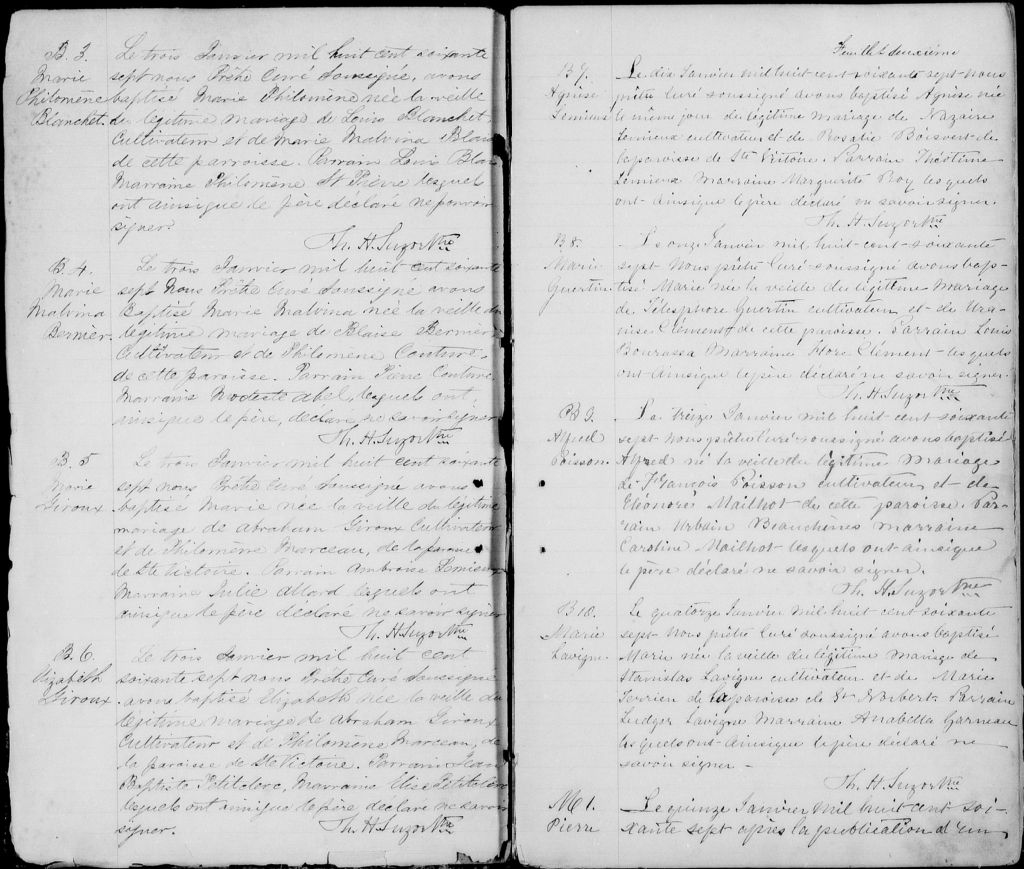 B. 3.
Marie
Philomène
Blanchet.
Le trois Janvier mil huit cent soixante
sept nous Prêtre Curé Soussigné, avons
baptisé Marie Philomène née la veille
du légitime mariage de Louis Blanchet
Cultivateur et de Marie Malvina
de cette parroisse. Parrain Louis
Marraine Philomène St Pierre lesquels
ont ainsi que le père déclaré ne pouvoir
signer.
Th. H. Suzor Ptre
B. 4.
Marie
Malvina
Bernier.
Le trois Janvier mil huit cent soixante
sept Nous Prêtre Curé Soussigné avons
Baptisé Marie Malvina née la veille du
légitime mariage de Blaise Bernier
Cultivateur et de Philomène Couture.
de cette paroisse. Parrain Pierre Couture
Marraine Modeste Abel, lesquels ont,
ainsi que le père, déclaré ne savoir signer
Th. H. Suzor Ptre
B. 5
Marie
Giroux.
Le trois Janvier mil huit cent soixante
sept nous Prêtre Curé Soussigné avons
baptisé Marie née la veille du légitime
mariage de Abraham Giroux Cultivateur
et de Philomène Marceau, de la paroisse
de Ste Victoire. Parrain Ambroise Lemieux
Marraine Julie Allard lesquels ont
ainsi que le père déclaré ne savoir signer
Th. H. Suzor Ptre
B. 6.
Elizabeth
Giroux
Le trois Janvier mil huit cent
soixante sept nous Prêtre Curé Soussigné
avons baptisé Elizabeth née la veille du
légitime mariage de Abraham Giroux
Cultivateur et de Philomène Marceau, de
la paroisse de Ste Victoire. Parrain Jean
Baptiste Petitclerc, Marraine Elise Petitclerc
lesquels ont ainsi que le père déclaré ne savoir
signer.
Th. H. Suzor Ptre
Feuillet deuxième
B 7.
Agnèse
Lemieux
Le dix Janvier mil huit cent-soixante sept-nous
prêtre Curé soussigné avons baptisé Agnèse née
le même jour du légitime mariage de Nazaire
Lemieux cultivateur et de Rosalie Boisvert de
la paroisse de Ste Victoire. Parrain Théotime
Lemieux Marraine Marguerite Roy lesquels
ont-ainsi que le père déclaré ne savoir signer.
Th. H. Suzor Ptre
B 8.
Marie
Guertin
Le onze Janvier mil huit-cent-soixante
sept Nous prêtre Curé-soussigné avons bap-
tisé Marie née la veille du légitime mariage
de Télesphore Guertin cultivateur et de Ura-
nise Clément de cette paroisse. Parrain Louis
Bourassa Marraine Flore Clément-lesquels
ont-ainsi que le père déclaré ne savoir signer.
Th. H. Suzor Ptre
B 9.
Alfred
Poisson.
Le treize Janvier mil huit cent soixante
sept Nous prêtre Curé-soussigné avons baptisé
Alfred né la veille du légitime mariage
de François Poisson cultivateur et de
Eléonore Mailhot de cette paroisse. Par-
rain Urbain Beauchène marraine
Caroline Mailhot-lesquels ont-ainsi que
le père déclaré ne savoir signer.
Th. H. Suzor Ptre
B. 10.
Marie
Lavigne.
Le quatorze Janvier mil huit cent soixante
sept Nous prêtre Curé soussigné avons baptisé
Marie née la veille du légitime mariage de
Stanislas Lavigne cultivateur et de Marie
Terrien de la paroisse de St Norbert. Parrain
Ludger Lavigne Marraine Anabella Garneau
lesquels ont-ainsi que le père déclaré ne
savoir signer -
Th. H. Suzor Ptre
M 1.
Pierre
Le quinze Janvier mil huit cent soi-
xante sept après la publication d'un